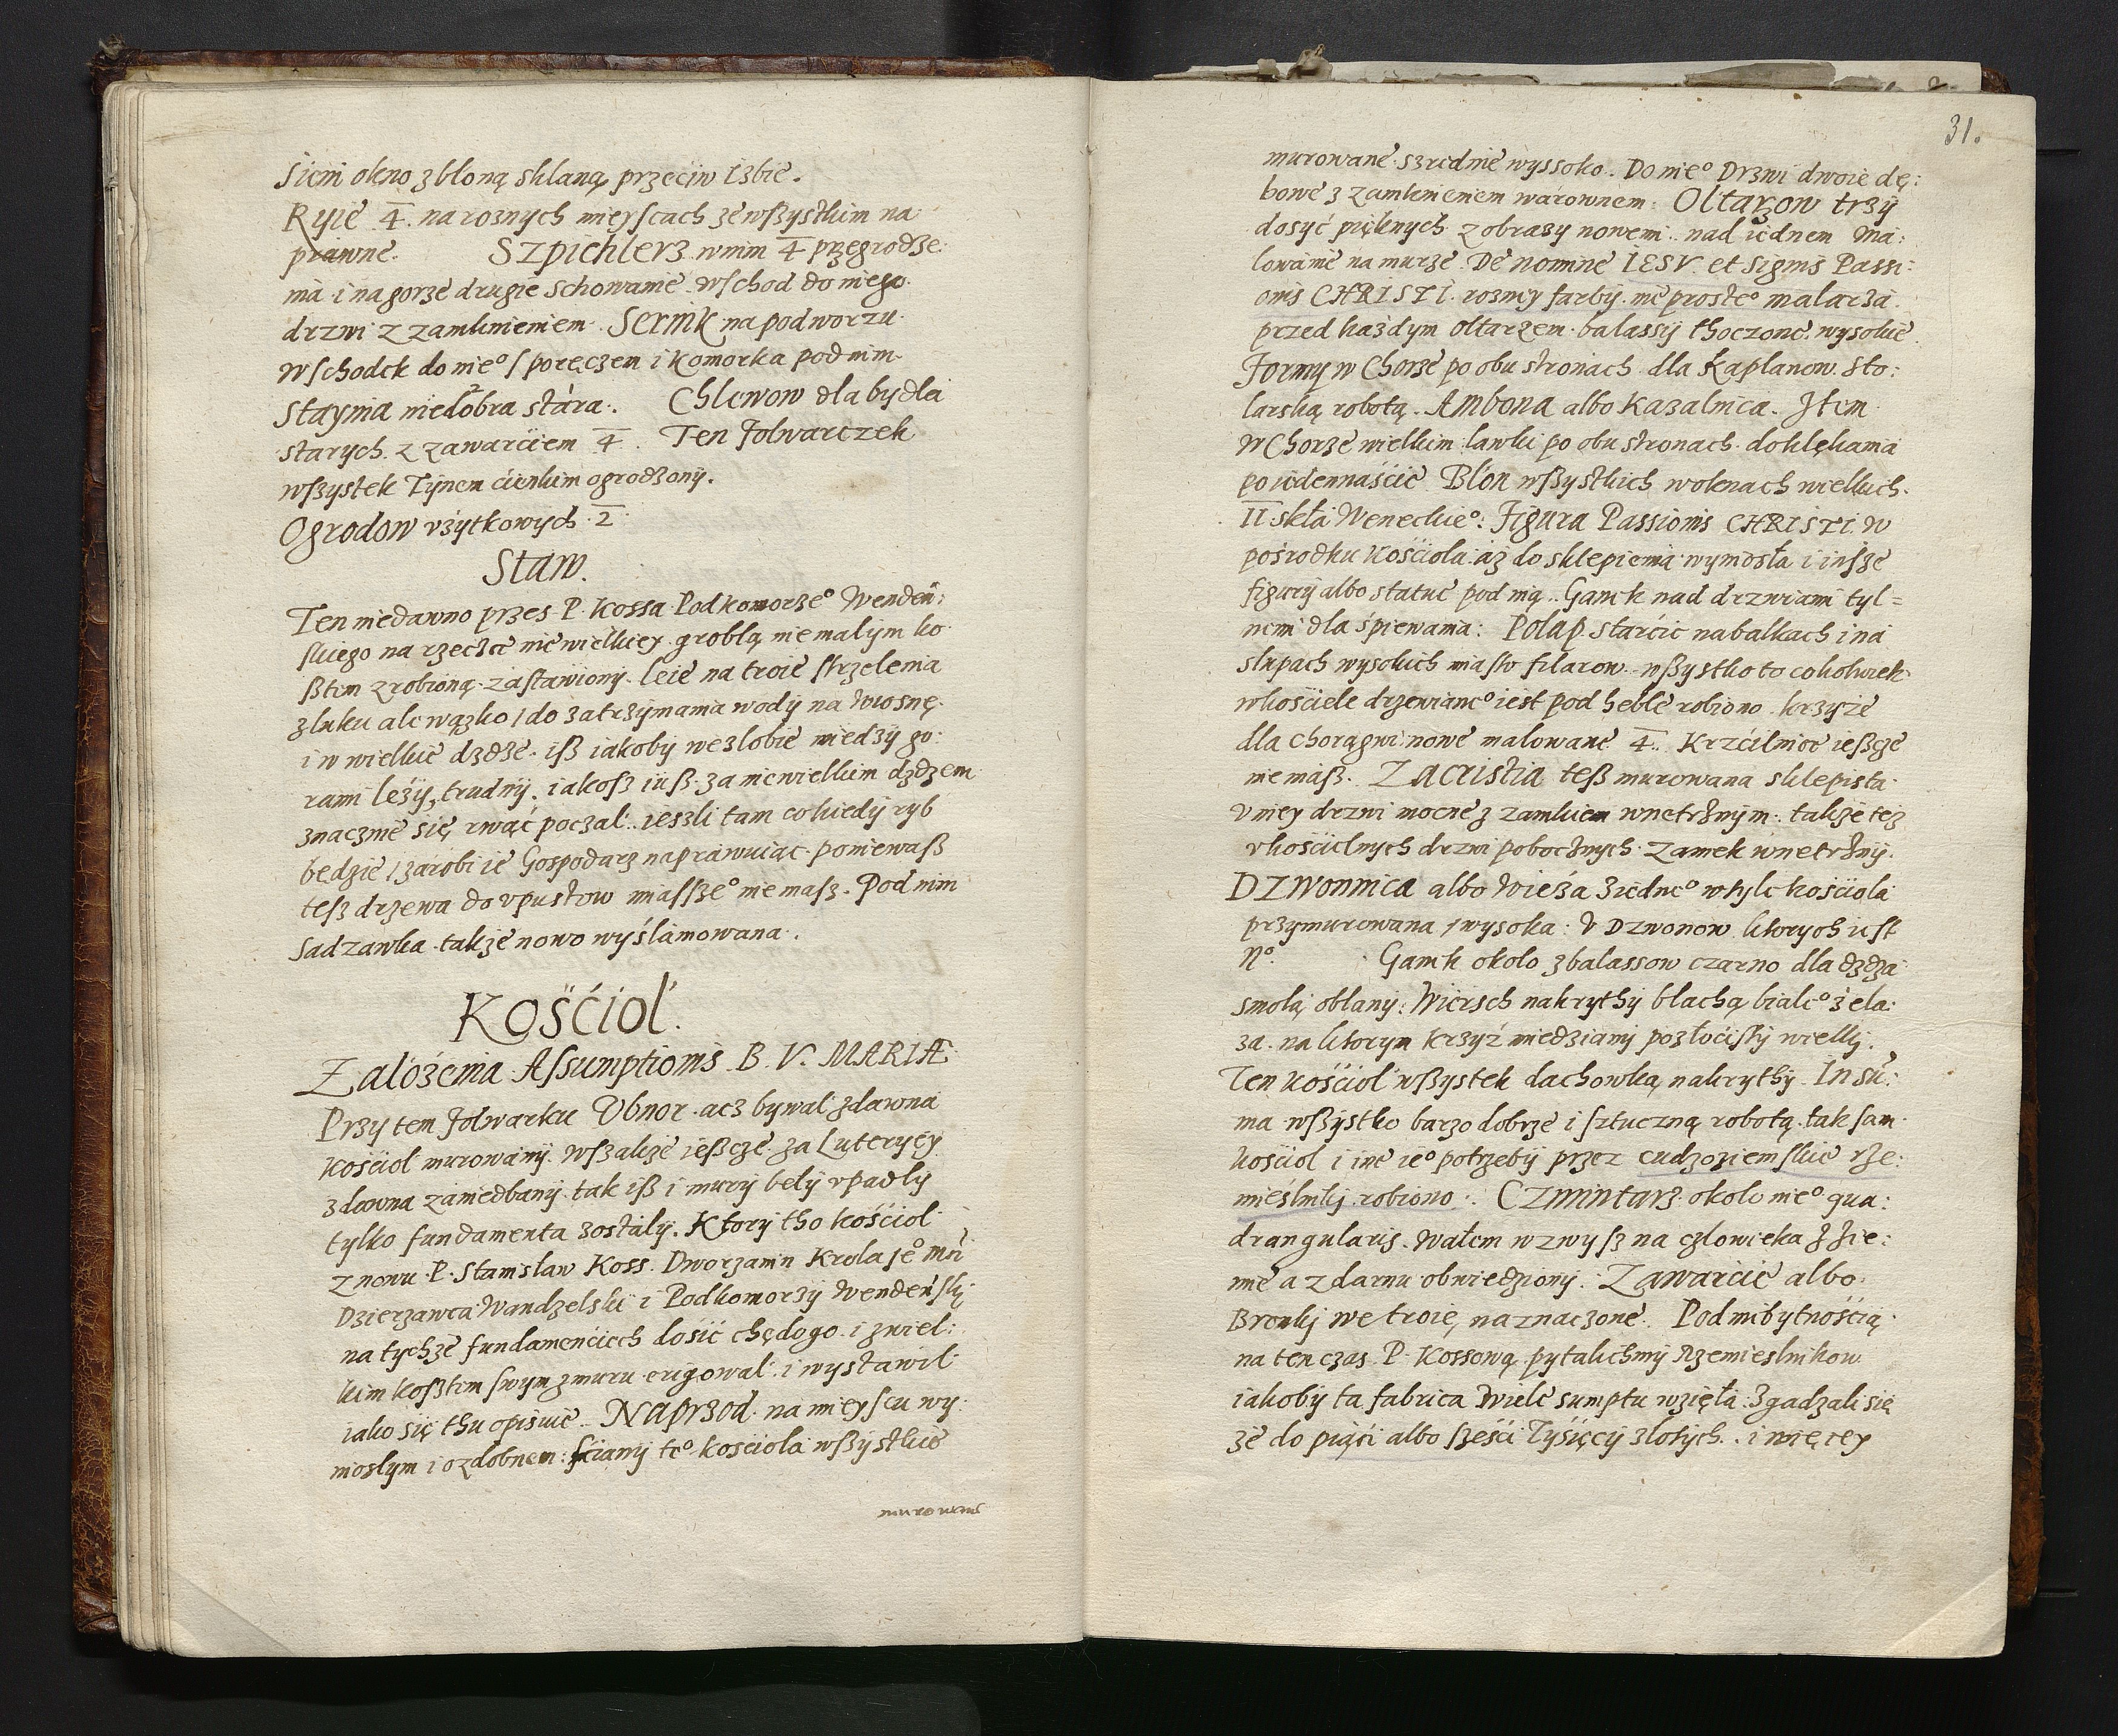 Sieni okno z bloną sklaną przeciw Izbie.
Ryie 4. na roznych mieyscach ze wßystkim na
prawne. Szpichlerz w nim 4 przegrodze:
nia i na gorze drugie schowanie. Wschod do niego
drzwi z zamknieniem. Sernik na podworzu
Wschodek do nieº s poręczem i komorka pod nim
Staynia niedobra stára. Chlewow dla bydla
starych z zawarciem 4. Ten folwarczek
wßystek Tynem ćienkim ogrodzony.
Ogrodow vżytkowych 2
Staw.
Ten niedawno przes P. Kossa Podkomorzeº Wendeń:
skiego na rzeczce niewielkiey groblą nie malym ko
ßtem zrobioną zastawiony. leie na troie strzelenia
z luku ale wązko / do zatrzymania wody na wiosnę
i w wielkie dzdze. iß iakoby we zlobie miedzy go:
rami leży, trudny. iakosz iuß za niewielkim dzdzem
znacznie się rwąć poczal. ieszli tam cokiedy ryb
będzie / zarobi ie Gospodarz naprawuiąc poniewaß
tesz drzewa do vpustow miasszeº nie masz. Pod nim
Sadzawka także nowo wyślamowana.
Kośćiol.
Zalożenia Assumptionis B. V. MARIÆ
Przy tem folwarku Vbnor acz bywal zdawna
kośćiol murowany. wszakże ießcze za Luteryey
zdawna zaniedbany tak iß i mury bely vpadly
tylko fundamenta zostaly. Ktory tho kośćiol
znowu P. Stanislaw Koss. Dworzanin Krola Jeº Mći
Dzierzawca Wandzelski i Podkomorzy Wendeński
na tychże fundamenćiech dosić chędogo i z wiel:
kim kosztem swym z muru erigowal i wystawil
iako się thu opisuie. Naprzod na mieyscu wy
nioslym i ozdobnem: sćiany teº kościola wßystkie
murowane
31.
murowane szrednie wyssoko. Do nieº Drzwi dwoie dę:
bowe z zamknieniem warownem. Oltarzow trzy
dosyć pięknych z obrazy nowemi. nad iednem Ma:
lowanie na murze De nomine IESV et Signis Passi:
onis CHRISTI. rozney farby. nie prosteº malarza
przed każdym oltarzem balassy thoczone wysokie
Formy w Chorze po obu stronach dla Kaplanow sto:
larską robotą. Ambona albo Kazalnica. Item
W Chorze wielkim lawki po obu stronach do klękania
po iedennaśćie Blon wßystkich w oknach wielkich
II skła Weneckieº. Figura Passionis CHRISTI w
pośrodku Kośćiola aż do sklepienia wyniosła i insze
figury albo statue pod nią. Ganek nad drzwiami tyl=
nemi dla śpiewania: Polap starćic na balkach i na
slupach wysokich miasto filarow. wßystko to cokolwiek
w kośćiele drzewianeº iest pod heble robiono. krzyże
dla chorągwi nowe malowane 4. Krzćilnice ießcze
nie maß. Zacristia teß murowana sklepista
V niey drzwi mocne z zamkiem wnetrznym. takze tez
v kośćielnych drzwi pobocznych. Zamek wnetrzny.
Dzwonnica albo wieża ziedneº w tyle kośćiola
przymurowana / wysoka: V Dzwonow ktorych iest
Nº. Ganek okolo z balassow czarno dla dzdza
smolą oblany: Wiersch nakrythy blachą bialeº żela:
za. na ktorym krzyż miedziany pozłoćisty wielki.
Ten kośćiol wßystek dachowką nakrythy. In sũ:
ma wßystko barzo dobrze i sztuczną robotą. tak sam
kośćiol i ine ieº potrzeby przez cudzoziemskie rze:
mieślniki robiono. Czmintarz okolo nieº qua:
drangularis. Wałem wzwysz na czlowieka z zie:
mie a z darnu obwiedziony. Zawarćie albo
Bronki we troie, naznaczone. Pod niebytnośćią
na ten czas P. Kossową pytalichmy Rzemieslnikow
iakoby ta fabrica wiele sumptu wzięła. Zgadzali się
że do piąći albo sześći Tyśięcy zlotych. i więcey